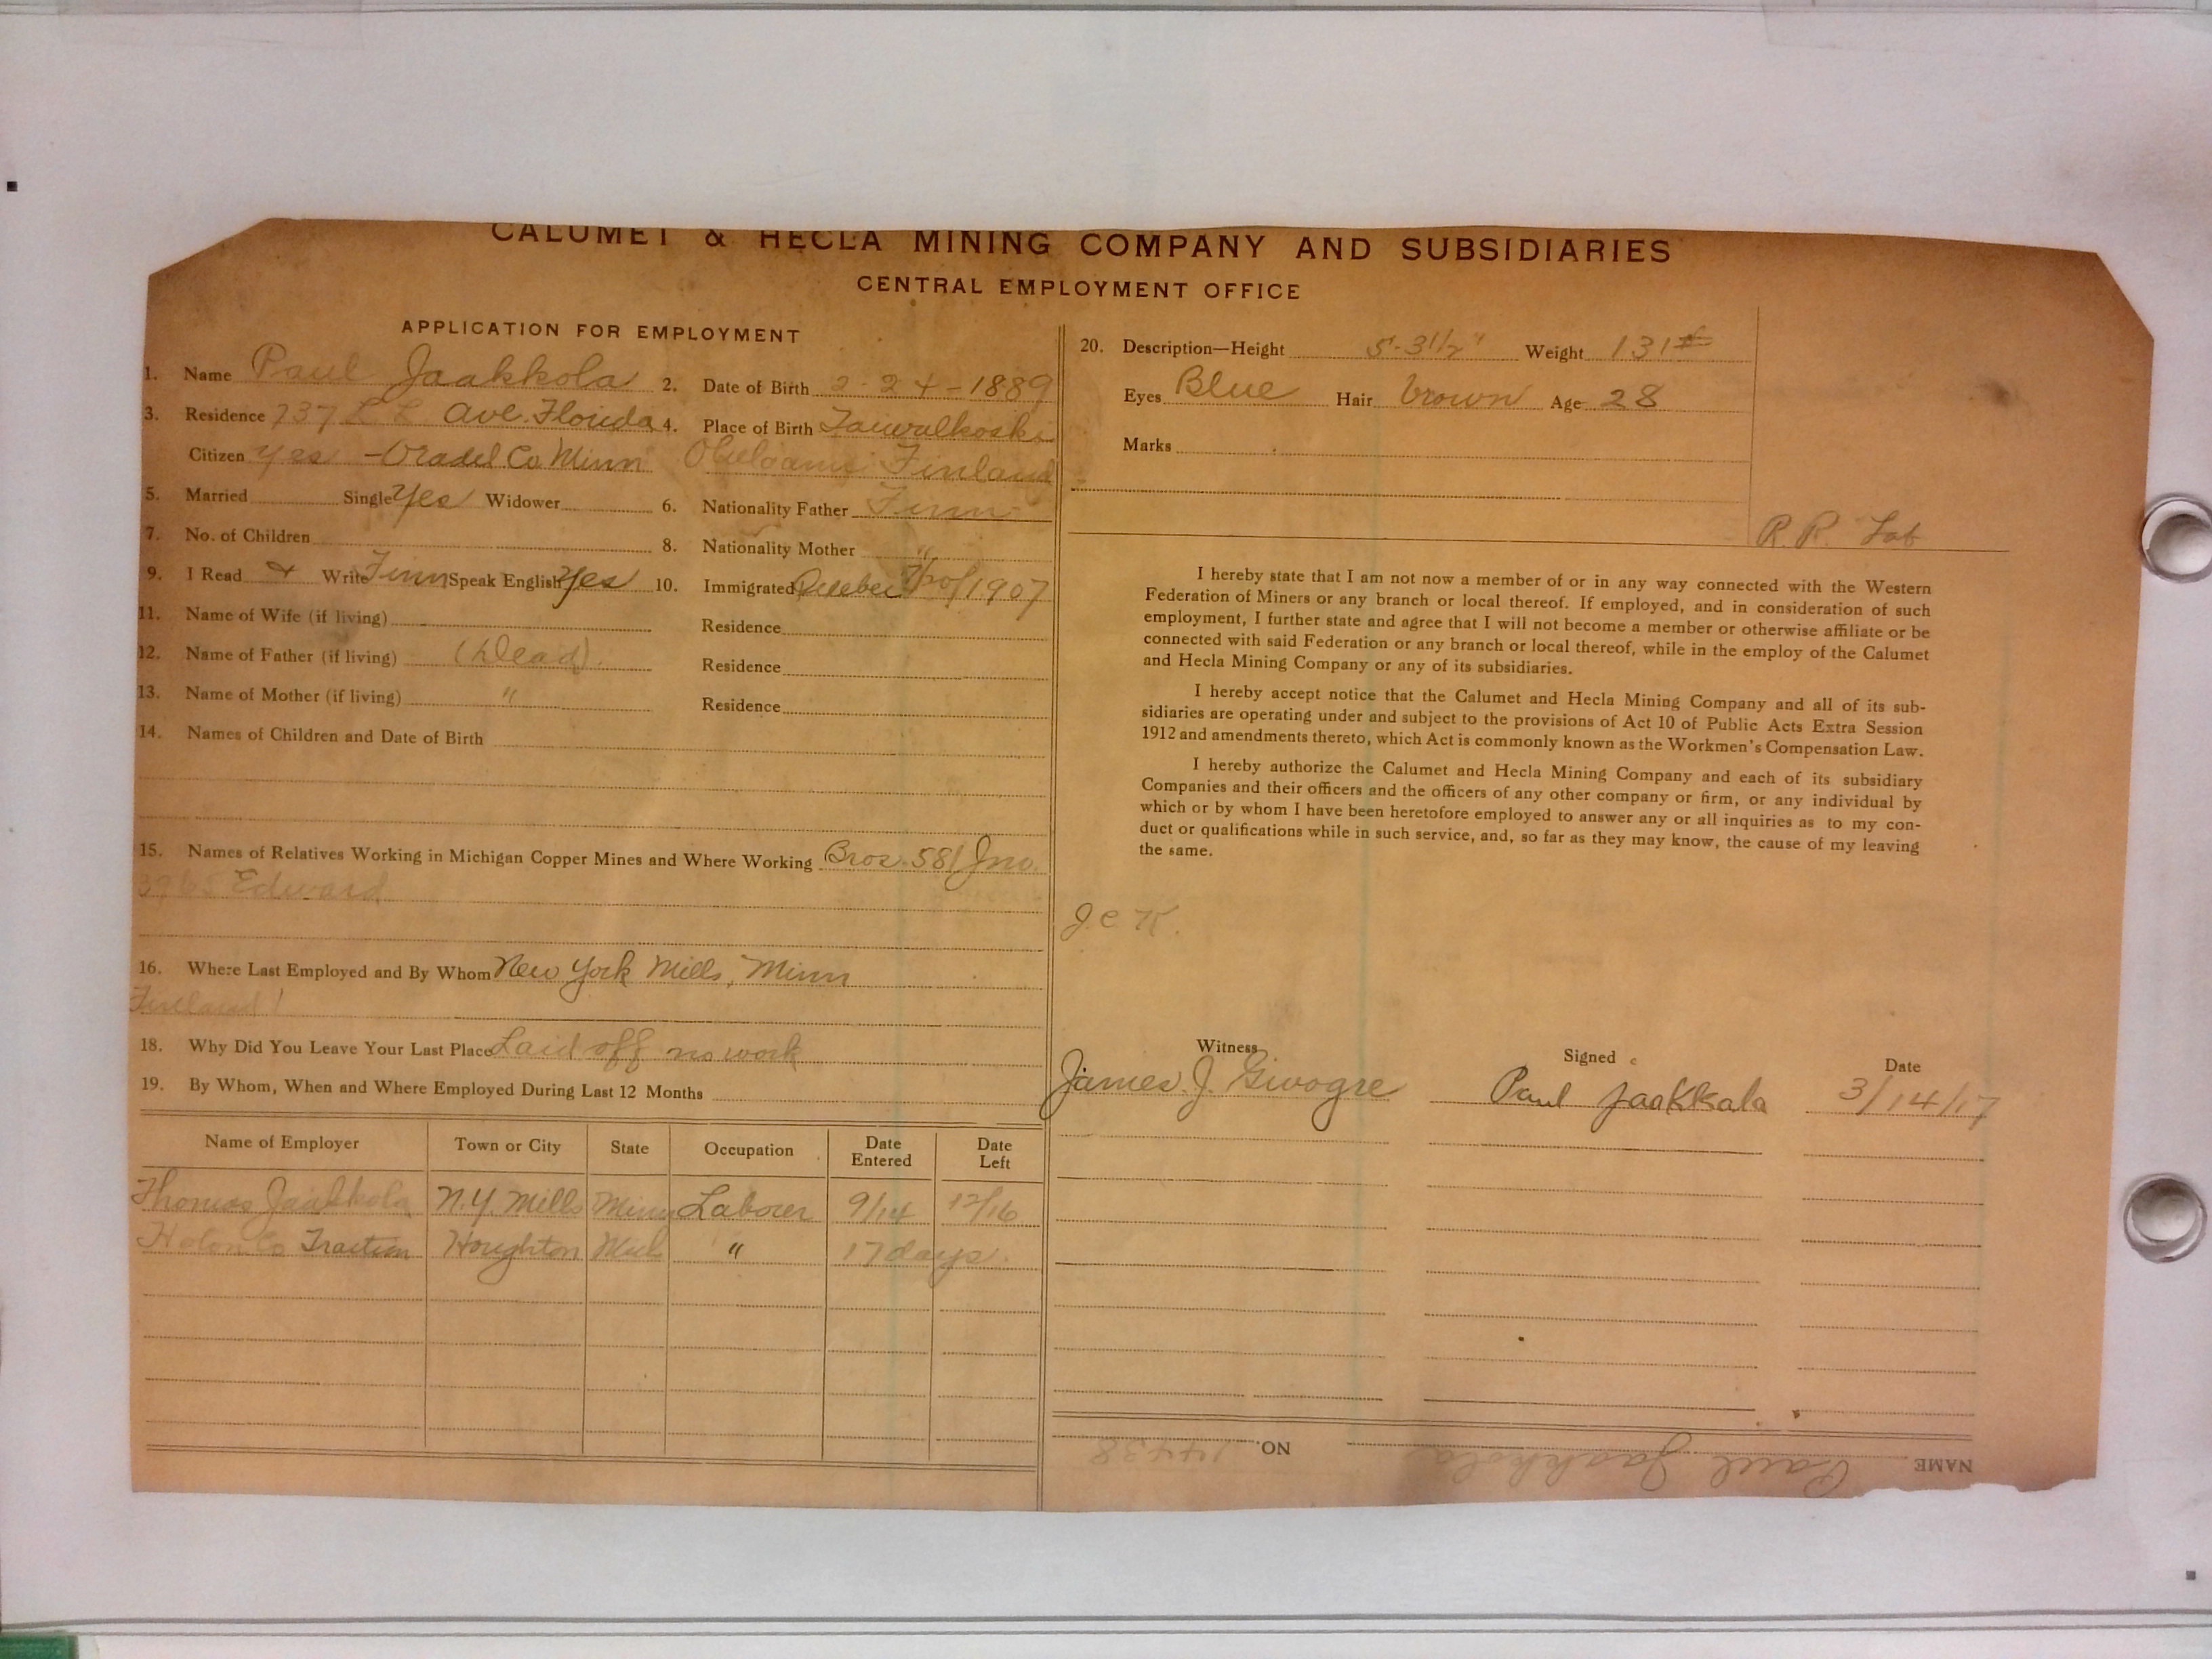 CALUMET & HECLA MINING COMPANY AND SUBSIDIARIES
CENTRAL EMPLOYMENT OFFICE
APPLICATION FOR EMPLOYMENT
1. Name Paul Jaakkola 2. Date of Birth 2-24-1889
3. Residence 737 Ave. Florida 4. Place of Birth
Citizen yes Co Minn Finland
5. Married Single Yes Widower 6. Nationality Father Finn
7. No. of Children 8. Nationality Mother "
9. I Read & Write Finn Speak English Yes 10. Immigrated 1907
11. Name of Wife (if living) Residence
12. Name of Father (if living) (Dead). Residence
13. Name of Mother (if living) " Residence
14. Names of Children and Date of Birth
15. Names of Relatives Working in Michigan Copper Mines and Where Working Bros. 581 Jno.
Edward
16. Where Last Employed and By Whom New York Mills, Minn
18. Why Did You Leave Your Last Place Laid off no work
19. By Whom, When and Where Employed During Last 12 Months
Name of Employer Town or City State Occupation Date Entered Date Left
Thomas Jaakkola N.Y. Mills Minn Laborer 9/14 12/16
Traction Houghton Mich " 17 days.
20. Description—Height 5'-3 1/2" Weight 131#
Eyes Blue Hair brown Age 28
Marks
R. R. Lab
I hereby state that I am not now a member of or in any way connected with the Western
Federation of Miners or any branch or local thereof. If employed, and in consideration of such
employment, I further state and agree that I will not become a member or otherwise affiliate or be
connected with said Federation or any branch or local thereof, while in the employ of the Calumet
and Hecla Mining Company or any of its subsidiaries.
I hereby accept notice that the Calumet and Hecla Mining Company and all of its sub-
sidiaries are operating under and subject to the provisions of Act 10 of Public Acts Extra Session
1912 and amendments thereto, which Act is commonly known as the Workmen's Compensation Law.
I hereby authorize the Calumet and Hecla Mining Company and each of its subsidiary
Companies and their officers and the officers of any other company or firm, or any individual by
which or by whom I have been heretofore employed to answer any or all inquiries as to my con-
duct or qualifications while in such service, and, so far as they may know, the cause of my leaving
the same.
J C K.
Witness Signed Date
James J. Paul Jaakkala 3/14/17
NAME Paul Jaakkola NO. 14438